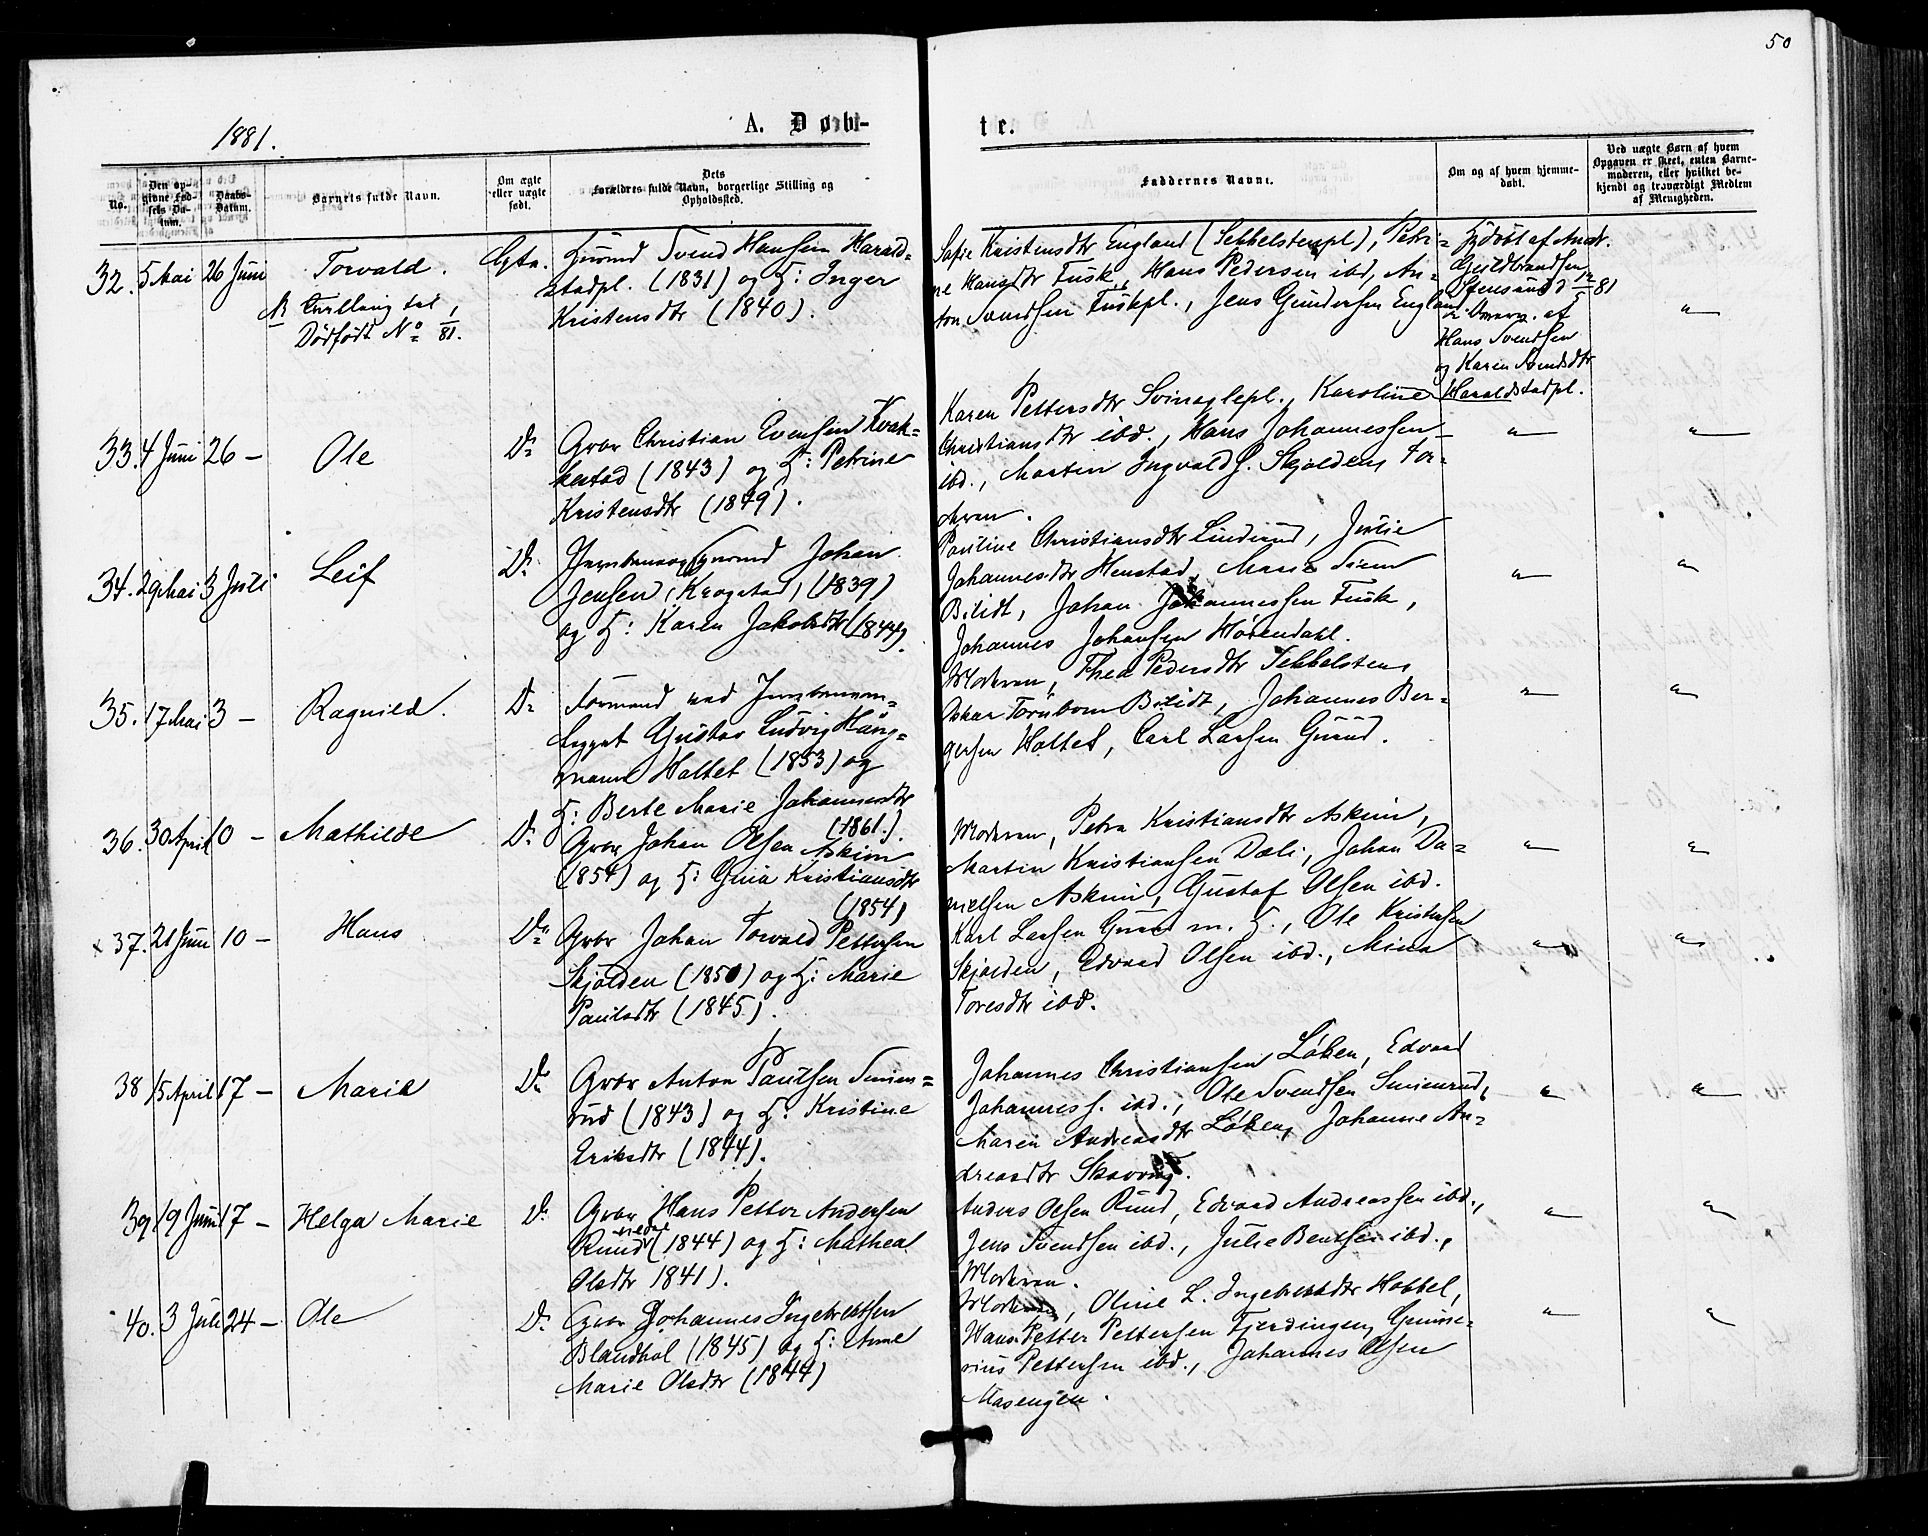 50
1881.
A. Døbte.
No.
Den opgivne Fødsels Datum.
Daabs-Datum.
Barnets fulde Navn.
Om ægte eller uægte født.
Dets Forældres fulde Navn, borgerlige Stilling og Opholdssted.
Faddernes Navne.
Om og af hvem hjemmedøbt.
Ved uægte Børn af hvem Opgaven er skeet, enten Barnemoderen, eller hvilket bekjendt og troværdigt Medlem af Menigheden.
32. 5 Mai 26 Juni Torvald. Ægte.
NB Tvilling til
Dødfødt No 1/81.
Svend Hansen Harald=
stadpl. (1831) og H: Inger
Kristensdtr (1840).
Sofie Kristensdtr England (Tebbelstenpl), Petri=
ne Hansdtr Fusk, Hans Pedersen ibd, An=
ton Svendsen Fuskpl., Jens Gundersen England
Hjdøbt af Andr.
Guldbrandsen
Stensrud 12/5 81
af
Hans Svendsen
og Karen Svendsdtr
Haraldstadpl.
"
33. 4 Juni 26 — Ole Do
Gbr Christian Evensen Kvak=
kestad (1843) og H: Petrine
Kristensdtr (1849).
Karen Pettersdtr Svinaglepl., Karoline
Christiansdtr ibd., Hans Johannessen
ibd., Martin Ingvald S. Skjolden, Fa=
deren.
" "
34. 29 Mai 3 Juli Leif Do
Johan
Jensen, Krogstad, (1839)
og H: Karen Jakobsdtr (1844).
Pauline Christiansdtr Lindrud, Julie
Johannesdtr Henstad, Marie
Bilidt, Johan Johannessen Fusk,
Johannes Johansen Hørendahl.
" "
35. 17 Mai 3 — Ragnild. Do
Formand ved Jernbanean=
lægget Gustav Ludvig Haug=
mann Holtet (1853) og
H: Berte Marie Johannesdtr
(1861.).
Moderen, Thea Pedersdtr Tebbelsten,
Oskar Törnbom Bilidt, Johannes Ber=
gersen Holtet, Carl Larsen Gurud.
" "
36. 30 April 10 — Mathilde Do
Gbr Johan Olsen Askim
(1854) og H: Gina Kristiansdtr
(1854)
Moderen, Petra Kristiansdtr Askim,
Martin Kristiansen Dæli, Johan Da=
nielsen Askim, Gustaf Olsen ibd.
" "
x 37. 21 Juni 10 — Hans Do
Gbr Johan Torvald Pettersen
Skjolden (1850) og H: Marie
Paulsdtr (1845).
Karl Larsen Gurud m. H., Ole Kristensen
Skjolden, Edvard Olsen ibd., Mina
Toresdtr ibd.
" "
38 15 April 17 — Marie Do
Gbr Anton Paulsen Smien=
rud (1843) og H: Kristine
Eriksdtr (1844).
Johannes Christiansen Løken, Edvard
Johanness. ibd., Ole Svendsen Smienrud,
Maren Andreasdtr Løken, Johanne An=
dreasdtr Skavring.
" "
39. 19 Juni 17 — Helga Marie Do
Gbr Hans Petter Andersen
Ruud (1844) og H: Mathea
Olsdtr 1841).
Anders Olsen Ruud, Edvard Andreassen ibd.,
Jens Svendsen ibd., Julie Bentsen ibd.,
Moderen.
" "
40. 3 Juli 24 — Ole Do
Gbr Johannes Ingebretsen
Blandhol (1845) og H: Anne
Marie Olsdtr (1844)
Moderen, Oline L. Ingebretsdtr Hobbel,
Hans Petter Pettersen Fjerdingen, Gunne=
rius Pettersen ibd., Johannes Olsen
Masengen.
" "